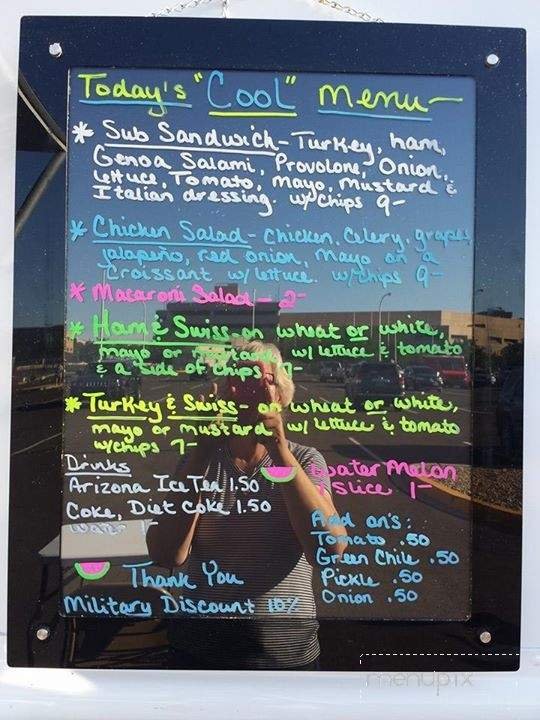 Today's "Cool" Menu-
* Sub Sandwich - Turkey, ham,
Genoa Salami, Provolone, Onion,
lettuce, Tomato, Mayo, Mustard &
Italian dressing. w/ chips 9-
* Chicken Salad - Chicken, Celery, grapes,
jalapeño, red onion, Mayo on a
Croissant w/ lettuce. w/ chips 9-
* Macaroni Salad - 2-
* Ham & Swiss - on wheat or white,
mayo or mustard w/ lettuce & tomato
& a side of chips 7-
* Turkey & Swiss - on wheat or white,
mayo or mustard w/ lettuce & tomato
w/ chips 7-
Drinks
Arizona Ice Tea 1.50
Coke, Diet Coke 1.50
Water 1-
Water Melon
Slice 1-
Add on's:
Tomato .50
Green Chile .50
Pickle .50
Onion .50
Thank You
Military Discount 10%
menupix